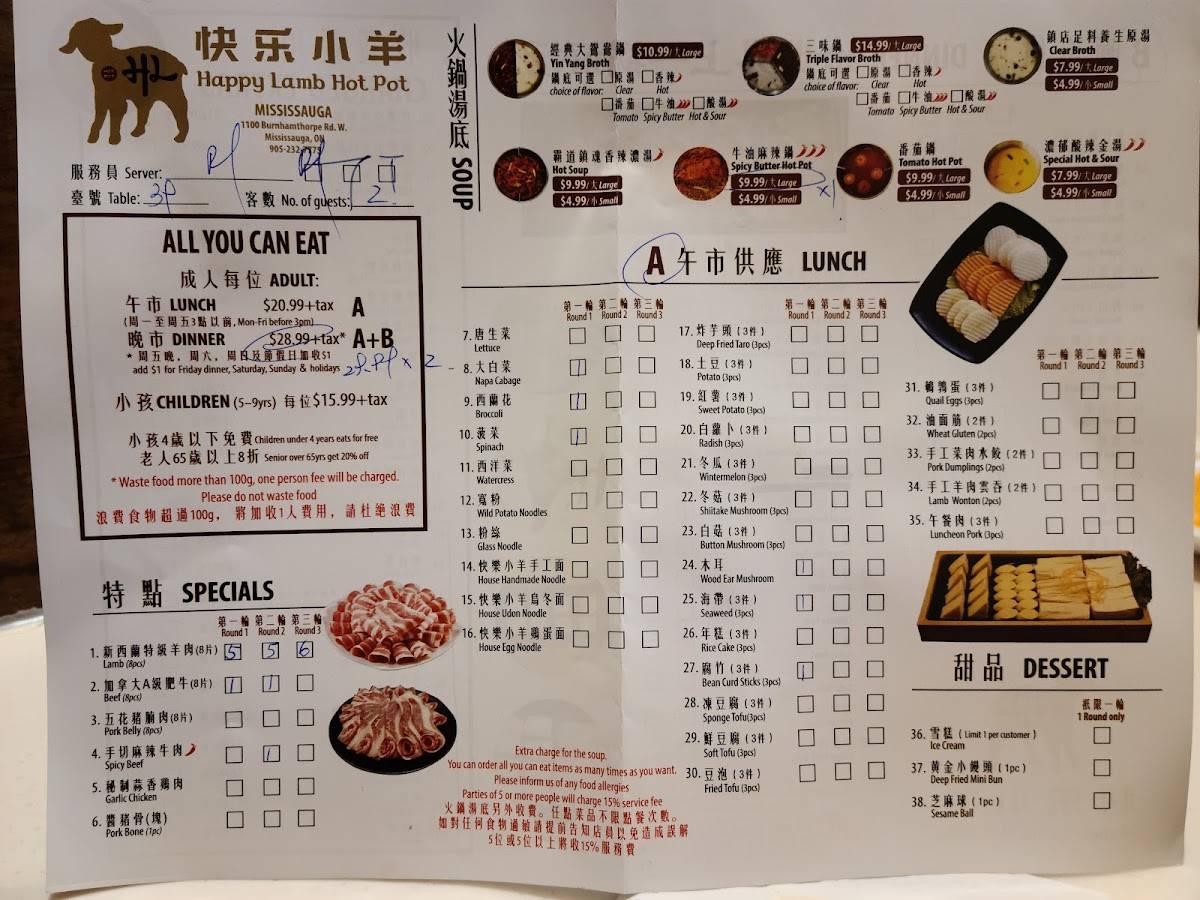 快乐小羊
Happy Lamb Hot Pot
MISSISSAUGA
1100 Burnhamthorpe Rd. W.
Mississauga, ON
905-232-
服務員 Server:
臺號 Table: 3P 客數 No. of guests: 2
ALL YOU CAN EAT
成人每位 ADULT:
午市 LUNCH $20.99+tax A
(周一至周五3點以前, Mon-Fri before 3pm)
晚市 DINNER $28.99+tax* A+B
* 周五晚, 周六, 周日及節假日加收$1
add $1 for Friday dinner, Saturday, Sunday & holidays
x 2
小孩 CHILDREN (5–9yrs) 每位 $15.99+tax
小孩4歲以下免費 Children under 4 years eats for free
老人65歲以上8折 Senior over 65yrs get 20% off
* Waste food more than 100g, one person fee will be charged.
Please do not waste food
浪費食物超過100g, 將加收1人費用, 請杜絕浪費
特點 SPECIALS
第一輪 第二輪 第三輪
Round 1 Round 2 Round 3
1. 新西蘭特級羊肉(8片) 5 5 6
Lamb (8pcs)
2. 加拿大A級肥牛(8片) 1 1
Beef (8pcs)
3. 五花豬腩肉(8片)
Pork Belly (8pcs)
4. 手切麻辣牛肉 1
Spicy Beef
5. 秘制蒜香鷄肉
Garlic Chicken
6. 醬豬骨(塊)
Pork Bone (1pc)
火鍋湯底 SOUP
經典大鴛鴦鍋 $10.99/大 Large
Yin Yang Broth
鍋底可選 原湯 香辣
choice of flavor: Clear Hot
番茄 牛油 酸湯
Tomato Spicy Butter Hot & Sour
三味鍋 $14.99/大 Large
Triple Flavor Broth
鍋底可選 原湯 香辣
choice of flavor: Clear Hot
番茄 牛油 酸湯
Tomato Spicy Butter Hot & Sour
鎮店足料養生原湯
Clear Broth
$7.99/大 Large
$4.99/小 Small
霸道鎮魂香辣濃湯
Hot Soup
$9.99/大 Large
$4.99/小 Small
牛油麻辣鍋
Spicy Butter Hot Pot
$9.99/大 Large
$4.99/小 Small
x1
番茄鍋
Tomato Hot Pot
$9.99/大 Large
$4.99/小 Small
濃郁酸辣金湯
Special Hot & Sour
$7.99/大 Large
$4.99/小 Small
A 午市供應 LUNCH
第一輪 第二輪 第三輪
Round 1 Round 2 Round 3
7. 唐生菜
Lettuce
8. 大白菜 1
Napa Cabage
9. 西蘭花 1
Broccoli
10. 菠菜 1
Spinach
11. 西洋菜
Watercress
12. 寬粉
Wild Potato Noodles
13. 粉絲
Glass Noodle
14. 快樂小羊手工面
House Handmade Noodle
15. 快樂小羊烏冬面
House Udon Noodle
16. 快樂小羊鷄蛋面
House Egg Noodle
第一輪 第二輪 第三輪
Round 1 Round 2 Round 3
17. 炸芋頭 (3件)
Deep Fried Taro (3pcs)
18. 土豆 (3件)
Potato (3pcs)
19. 紅薯 (3件)
Sweet Potato (3pcs)
20. 白蘿卜 (3件)
Radish (3pcs)
21. 冬瓜 (3件)
Wintermelon (3pcs)
22. 冬菇 (3件)
Shiitake Mushroom (3pcs)
23. 白菇 (3件)
Button Mushroom (3pcs)
24. 木耳 1
Wood Ear Mushroom
25. 海帶 (3件) 1
Seaweed (3pcs)
26. 年糕 (3件)
Rice Cake (3pcs)
27. 腐竹 (3件) 1
Bean Curd Sticks (3pcs)
28. 凍豆腐 (3件)
Sponge Tofu(3pcs)
29. 鮮豆腐 (3件)
Soft Tofu (3pcs)
30. 豆泡 (3件)
Fried Tofu (3pcs)
第一輪 第二輪 第三輪
Round 1 Round 2 Round 3
31. 鵪鶉蛋 (3件)
Quail Eggs (3pcs)
32. 油面筋 (2件)
Wheat Gluten (2pcs)
33. 手工菜肉水餃 (2件)
Pork Dumplings (2pcs)
34. 手工羊肉雲吞 (2件)
Lamb Wonton (2pcs)
35. 午餐肉 (3件)
Luncheon Pork (3pcs)
甜品 DESSERT
祇限一輪
1 Round only
36. 雪糕 ( Limit 1 per customer )
Ice Cream
37. 黄金小饅頭 (1pc)
Deep Fried Mini Bun
38. 芝麻球 (1pc)
Sesame Ball
Extra charge for the soup.
You can order all you can eat items as many times as you want.
Please inform us of any food allergies
Parties of 5 or more people will charge 15% service fee
火鍋湯底另外收費。任點菜品不限點餐次數。
如對任何食物過敏請提前告知店員以免造成誤解
5位或5位以上將收15%服務費